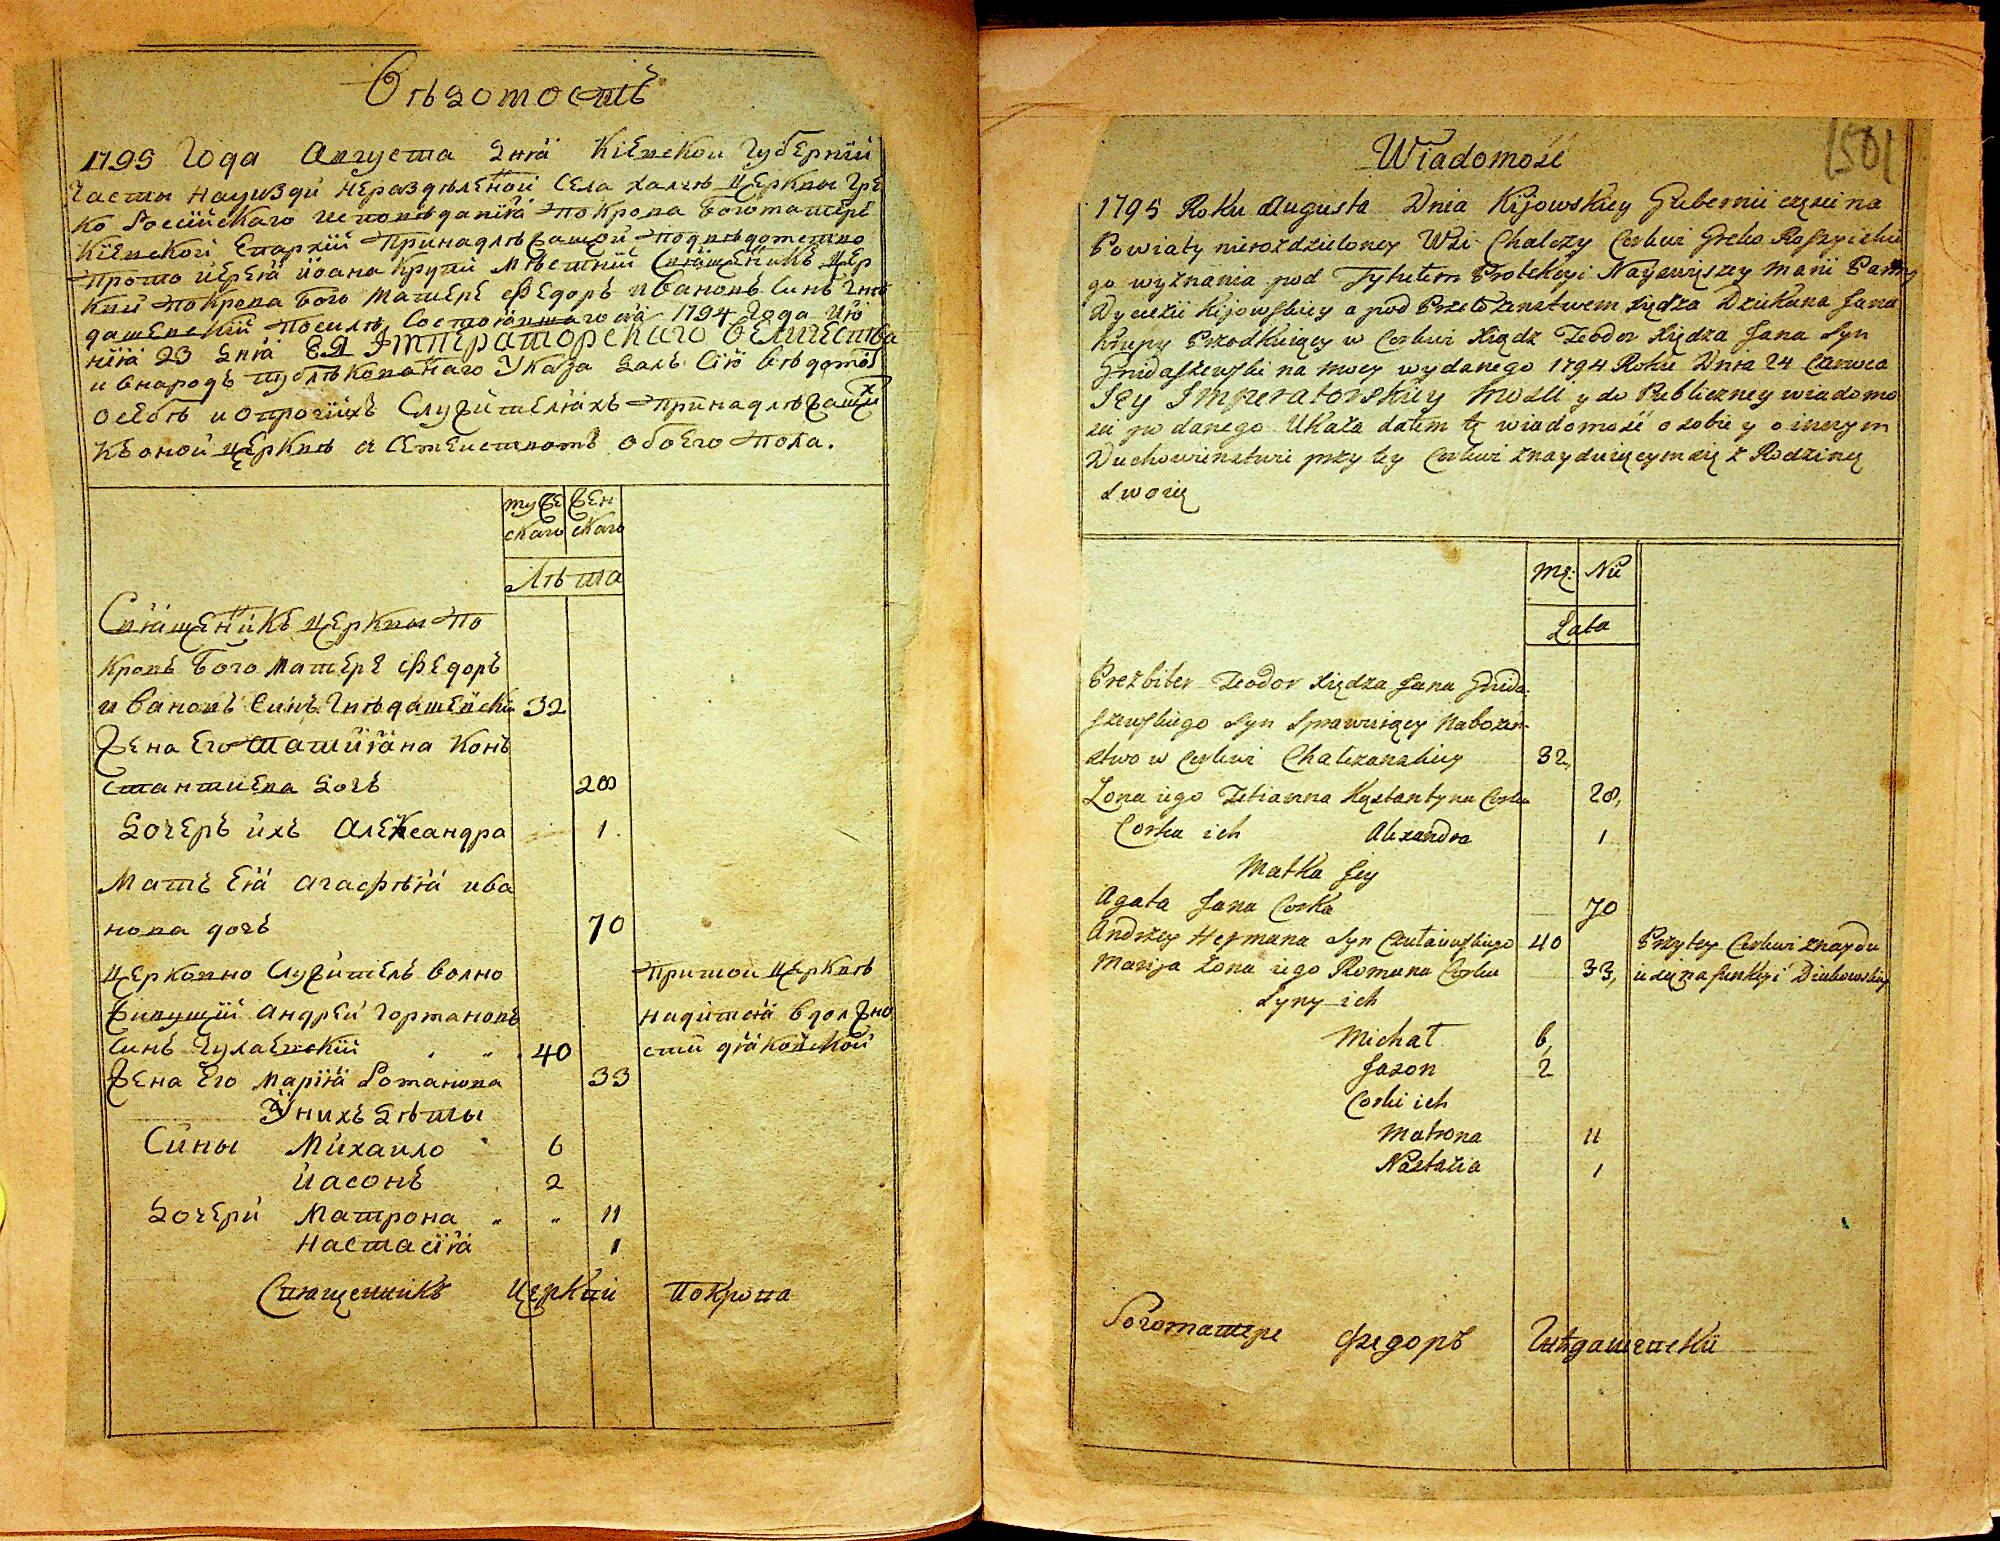 Вѣдомость
1795 Года Августа дня Кіевской Губерніи
Части науизди нераздѣленой Села Халчѣ Церквы Гре
ко Росийскаго исповѣданія Покрова Богоматере
Кіевской Епархіи Принадлѣжащой Подвѣдомство
Прото иерея иоана Крупи Мѣстній Священикъ Цер
кви Покрова Бого Матере Федоръ ивановъ Синъ Гнѣ
дашевский Посилѣ Состоявшагося 1794 Года Ию
нія 23 дня ЕЯ Императорскаго Величества
и внародъ публѣкованаго Указа далъ Сію вѣдомо
о себѣ и опрочіихъ Служителяхъ Принадлѣжащих
Къ оной церквѣ и Семействомъ обоего Пола.
муже скаго
жен скаго
Лѣта
Священикъ церквы По
кровъ Бого Матере Федоръ
ивановъ Синъ Гнѣдашевски 32
Жена Его Татияна Конъ
стантиева дочь 28
Дочеръ ихъ Александра 1
Мать Ея Агафѣя ива
нова дочь 70
Церковно Служитель волно
живущій Андрей Гормановъ
Синъ Чулаевскій 40
Притой Церквѣ
находится в должно
сти дяконской
Жена Его Марія Романова 33
У нихъ дѣты
Сины Михаило 6
Иасонъ 2
Дочери Матрона " " 11
Настасія 1
Священникъ Церкви Покрова
1501
Wiadomość
1795 Roku Augusta Dnia Kijowskiey Gubernii częsci na
Powiaty nierozdzieloney Wsi Chalczy Cerkwi Greko Rossyiskie
go wyznania pod Tytułem Protekcyi Nayswiętszey Maryi Panny
Dyecezii Kijowskiey a pod Przełozenstwem xiędza Dziekana Jana
Krupy Przodkuiący w Cerkwi Xiądz Teodor Xiędza Jana Syn
Gnidaszewski na mocy wydanego 1794 Roku Dnia 24 Czerwca
Jey Imperatorskiey Mosci y do Publiczney wiadomo
sci po danego Ukaza datem tę wiadomość o sobie y o innym
Duchowienstwie przy tey Cerkwi znayduiącym się z Rodziną
swoią
Mę: Nie
Lata
Prezbiter Teodor xiędza Jana Gnida-
szewskiego Syn Sprawuiący Nabozen-
stwo w Cerkwi Chalczanskiey 32,
Zona iego Tetianna Kostantyna Corka 28,
Corka ich Alexandra 1
Matka Jey
Agata Jana Corka 70
Andrzey Hermana Syn Czułaiewskiego 40 Przy tey Cerkwi znaydu
Marija Zona iego Romana Corka 33, ie się na funkcyi Diakowskiey
Syny ich
Michał 6,
Jazon 2
Corki ich
Matrona 11
Nastazia 1
Богоматере Федоръ Гнѣдашевскій